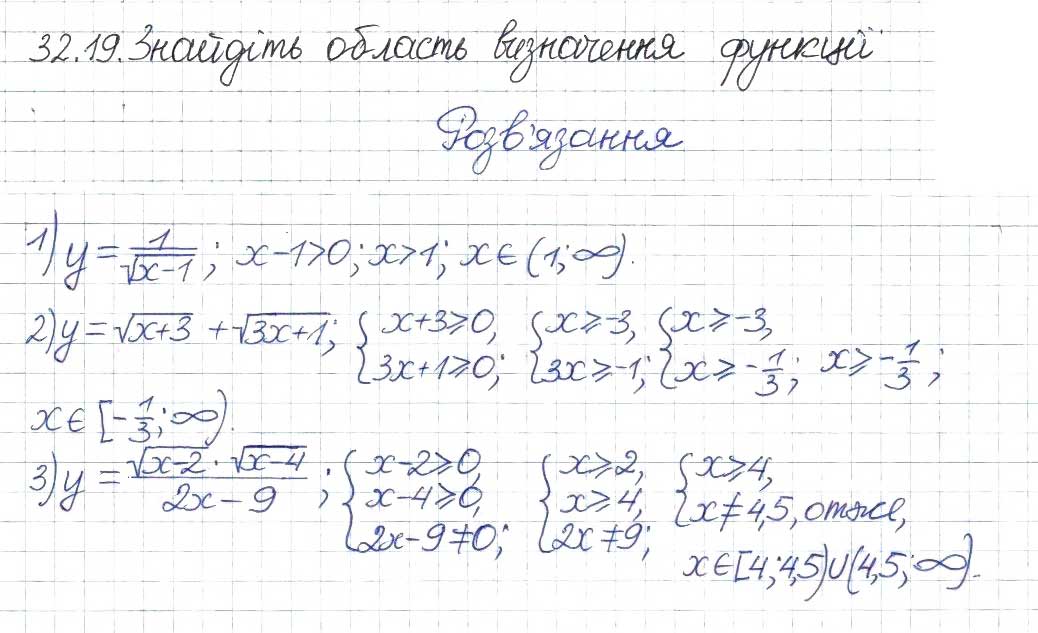 32.19. Знайдіть область визначення функції
Розв'язання
1) y = 1/√(x-1); x-1>0; x>1; x∈(1;∞).
2) y = √(x+3) + √(3x+1); { x+3≥0, 3x+1≥0; { x≥-3, 3x≥-1; { x≥-3, x≥-1/3; x≥-1/3;
x∈[-1/3;∞).
3) y = (√(x-2)·√(x-4))/(2x-9); { x-2≥0, x-4≥0, 2x-9≠0; { x≥2, x≥4, 2x≠9; { x≥4, x≠4,5, отже,
x∈[4;4,5)∪(4,5;∞).